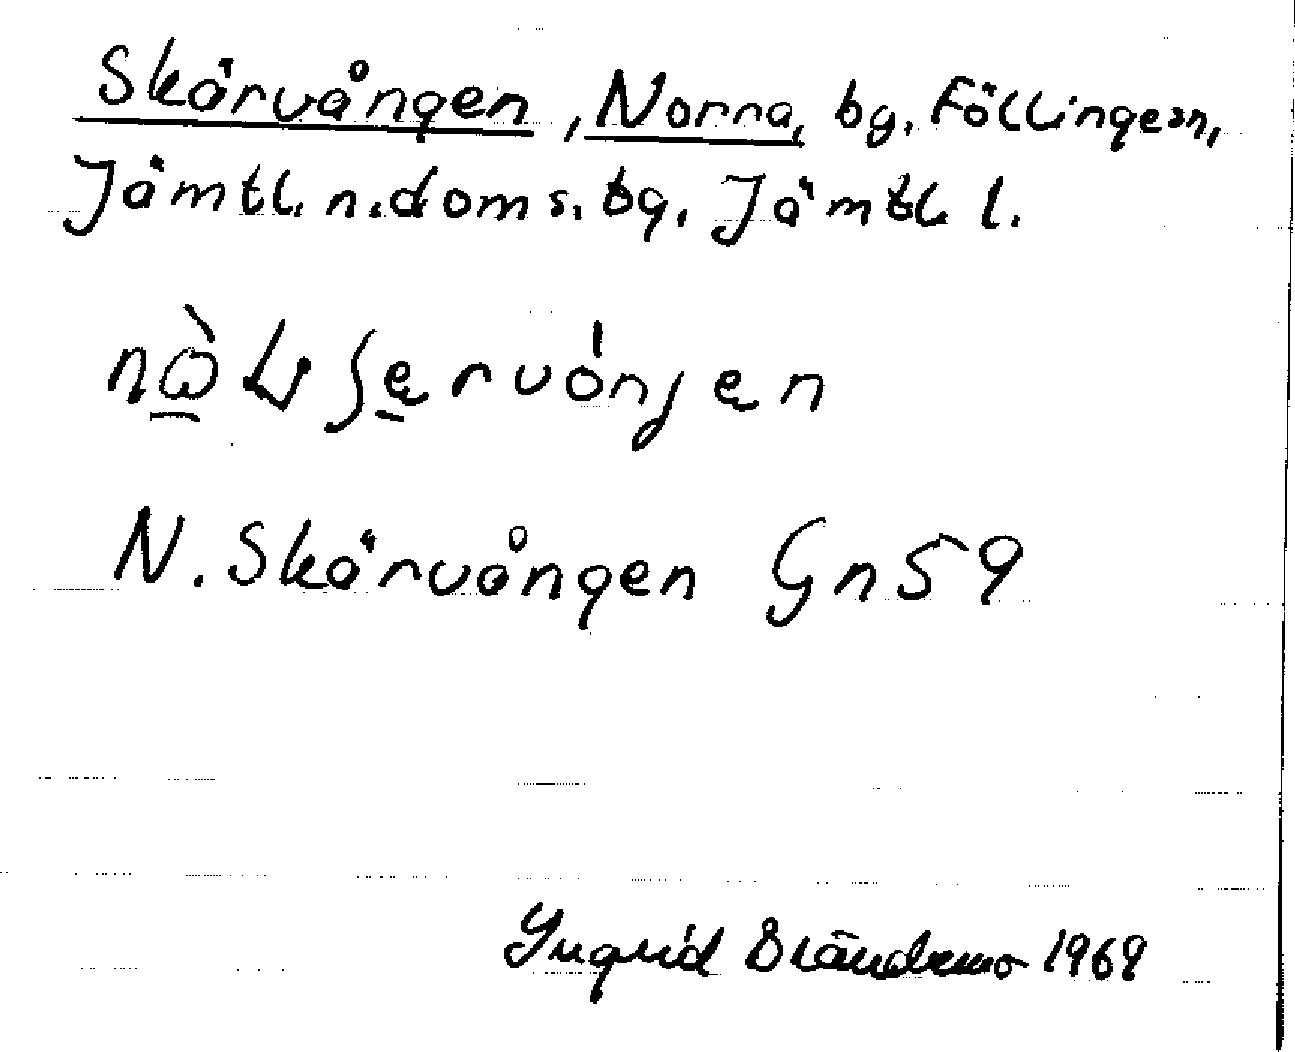 Skärvången, Norra, bg. Föllinge sn,
Jämtl. n. doms. bg. Jämtl l.
N. Skärvången Gn 59
Ingrid Brändemo 1969